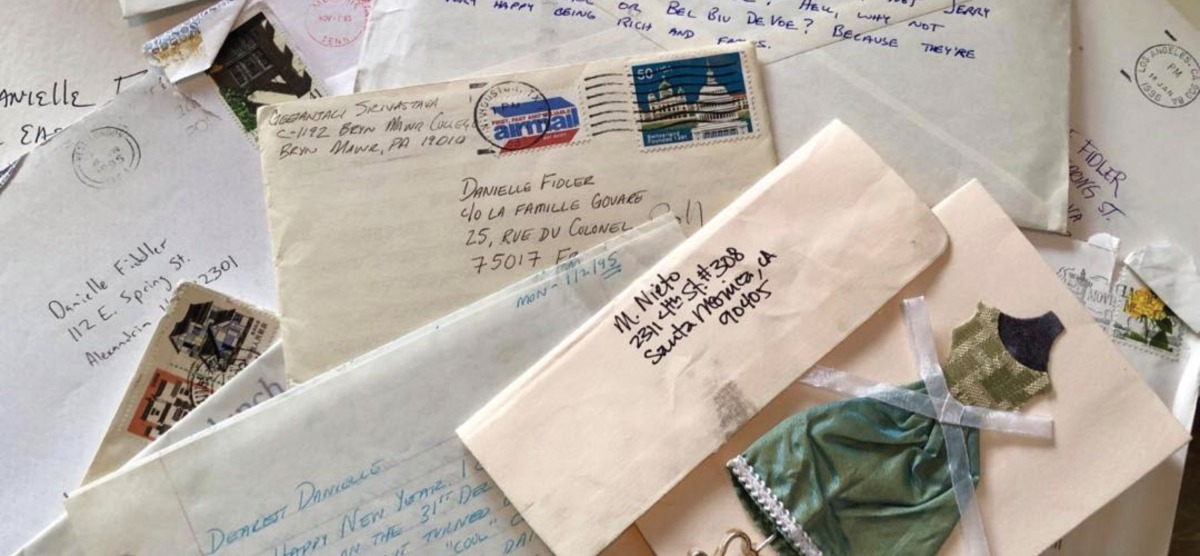 JERRY
OR BEL BIV DEVOE? HELL, WHY NOT
VERY HAPPY BEING RICH AND
BECAUSE THEY'RE
LOS ANGELES
PM
1996
GEETANJALI SRIVASTAVA
C-1192 BRYN MAWR COLLEGE
BRYN MAWR, PA 19010
HOUSTON, TX
airmail
50
DANIELLE FIDLER
C/O LA FAMILLE GOUARE
25, RUE DU COLONEL
75017
DANIELLE
FIDLER
ST.
VA
Danielle Fiddler
112 E. Spring St.
Alexandria
2301
MON - 1/2/95
M. Nieto
2311 4th St. #308
Santa Monica, CA
90405
DEAREST DANIELLE
HAPPY NEW YEAR. I
ON THE 31ST DEC
TURNED
"COOL"